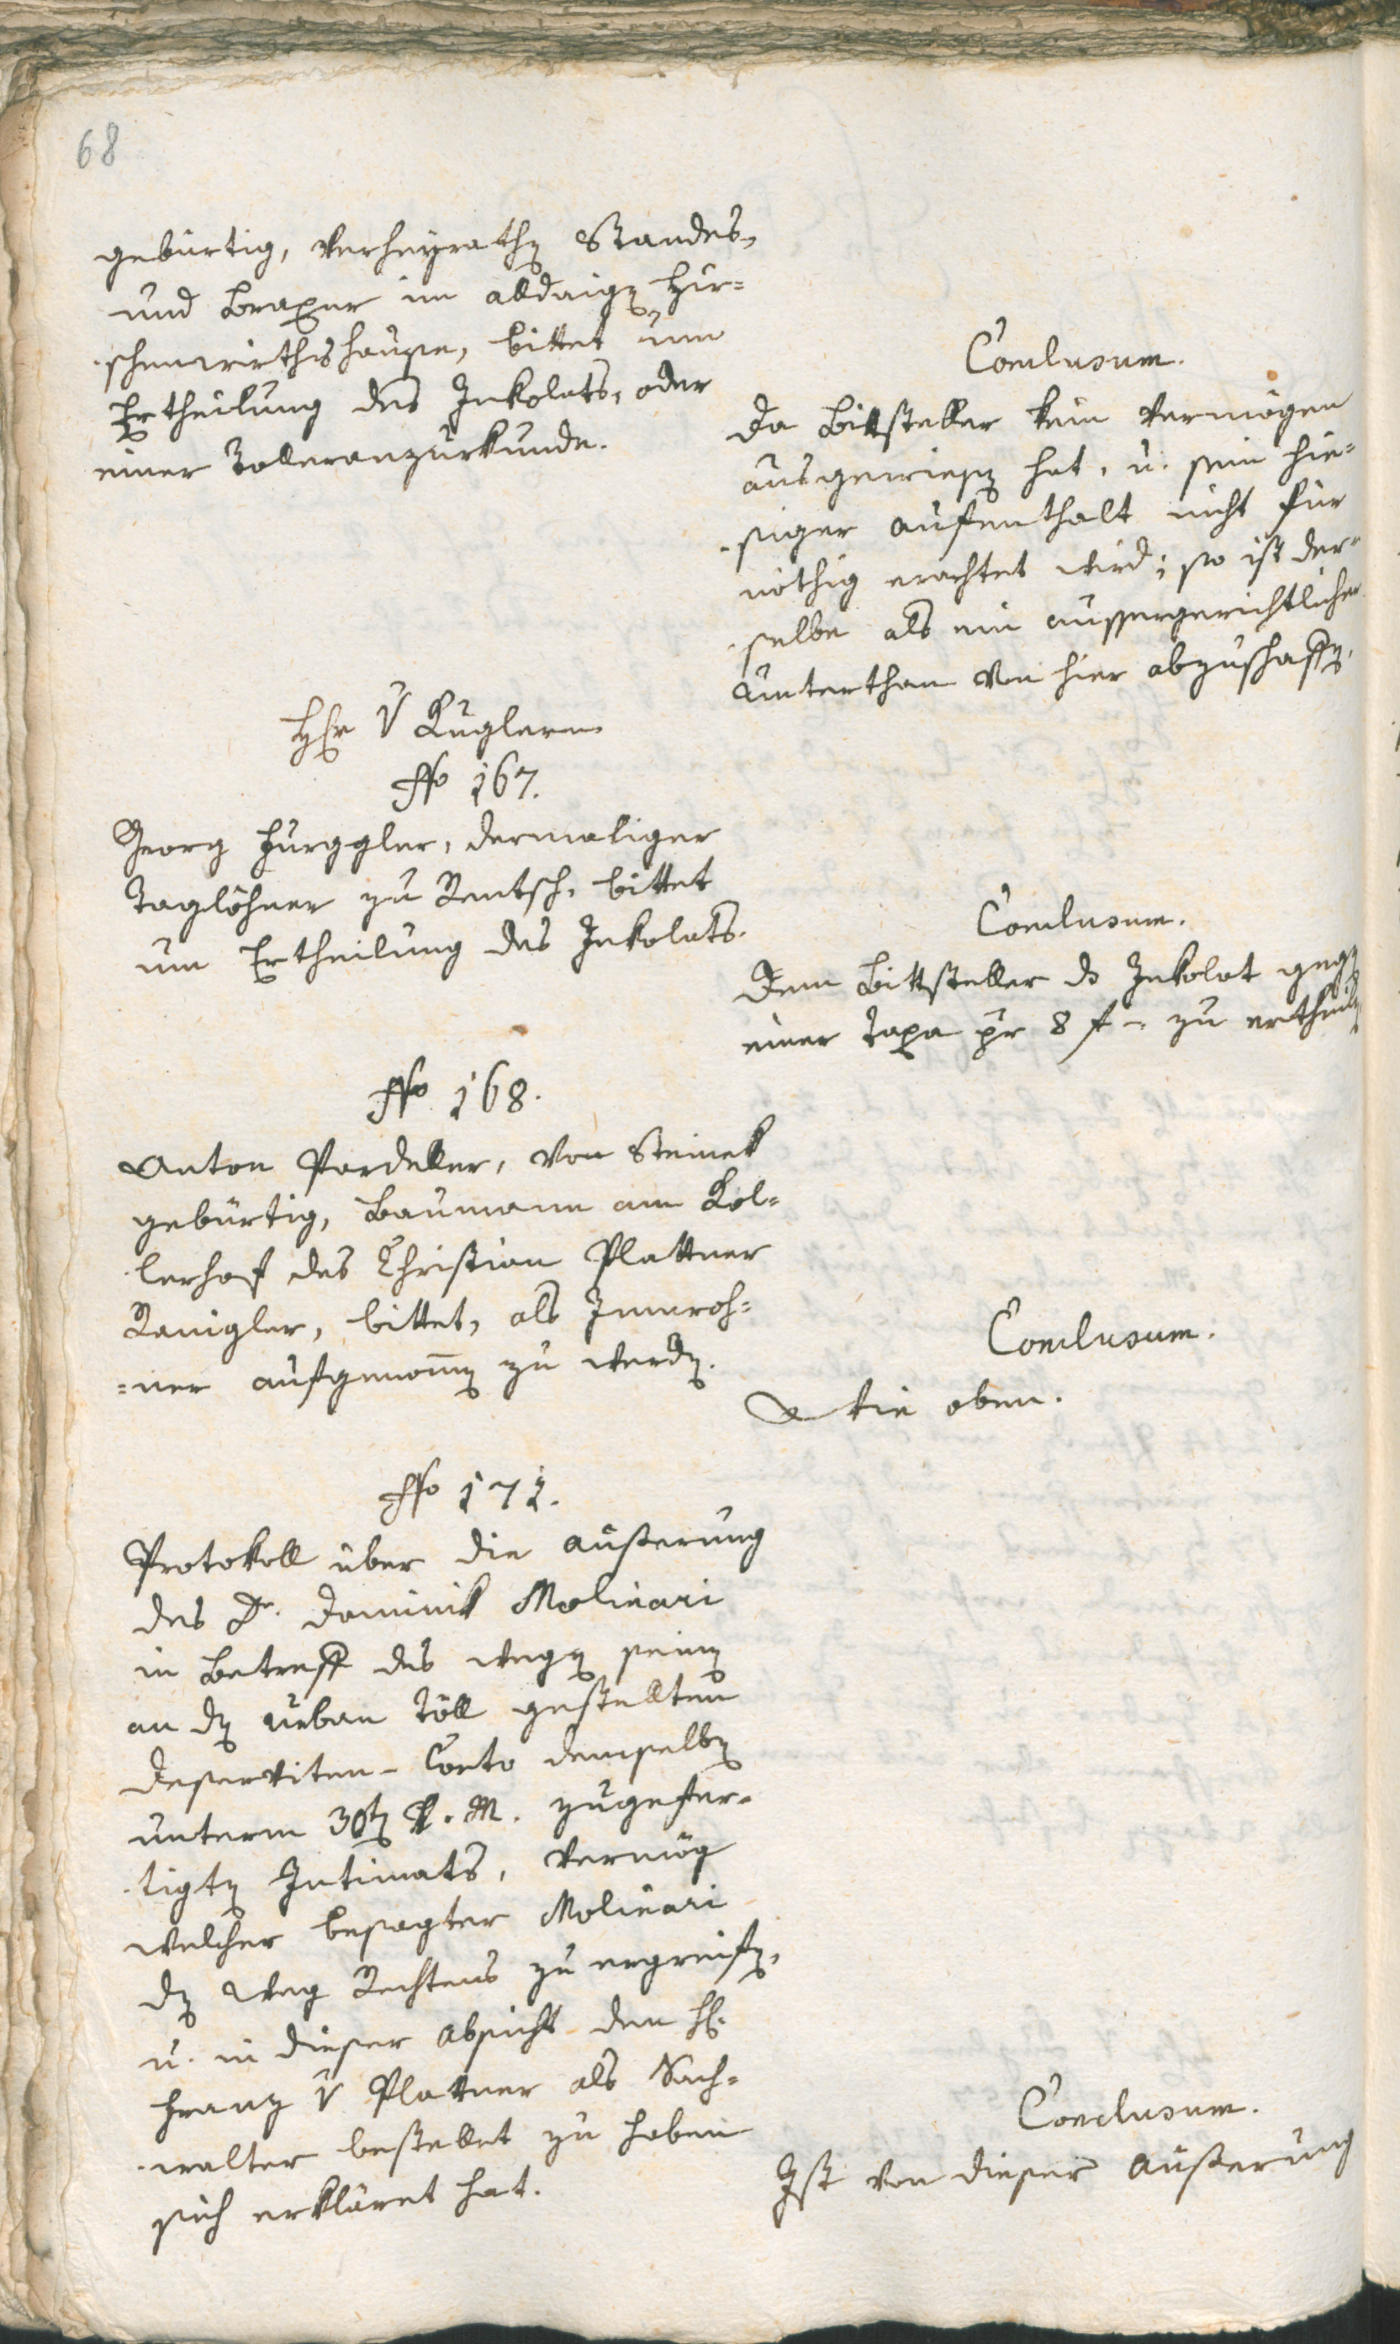 68
gebürtig, verheyrathen Standes,
und Braxer im alldaigen Hir-
schenwirthshause, bittet um
Ertheilung des Inkolats, oder
einer Tolleranzurkunde.
Conclusum.
Da Bittsteller kein Vermögen
ausgewiesen hat, u. sein hie-
siger Aufenthalt nicht für
nöthig erachtet wird; so ist der-
selbe als ein aussergerichtlicher
Unterthan von hier abzuschaffen.
Hr v Kuglern
No 167.
Georg Hurggler, dermaliger
Taglöhner zu Rentsch, bittet
um Ertheilung des Inkolats.
Conclusum.
Dem Bittsteller ds Inkolat gegen
einer Taxa pr 8 f - zu ertheilen
No 168.
Anton Pardeller, von Steinek
gebürtig, Baumann am Kol-
lerhof des Christian Plattner
Ranigler, bittet, als Innwoh-
=ner aufgenommen zu werden.
Conclusum.
Wie oben.
No 171.
Protokoll über die Äußerung
des Dr. Dominik Molinari
in Betreff des wegen seinen
an den Urban Töll gestellten
Deserviten-Conto demselben
unterm 30ten v. M. zugefer-
tigten Intimats, vermög
welcher besagter Molinari
den Weg Rechtens zu ergreifen,
u. in dieser Absicht den H.
Franz v Plattner als Sach-
walter bestellet zu haben
sich erkläret hat.
Conclusum.
Ist von dieser Äußerung